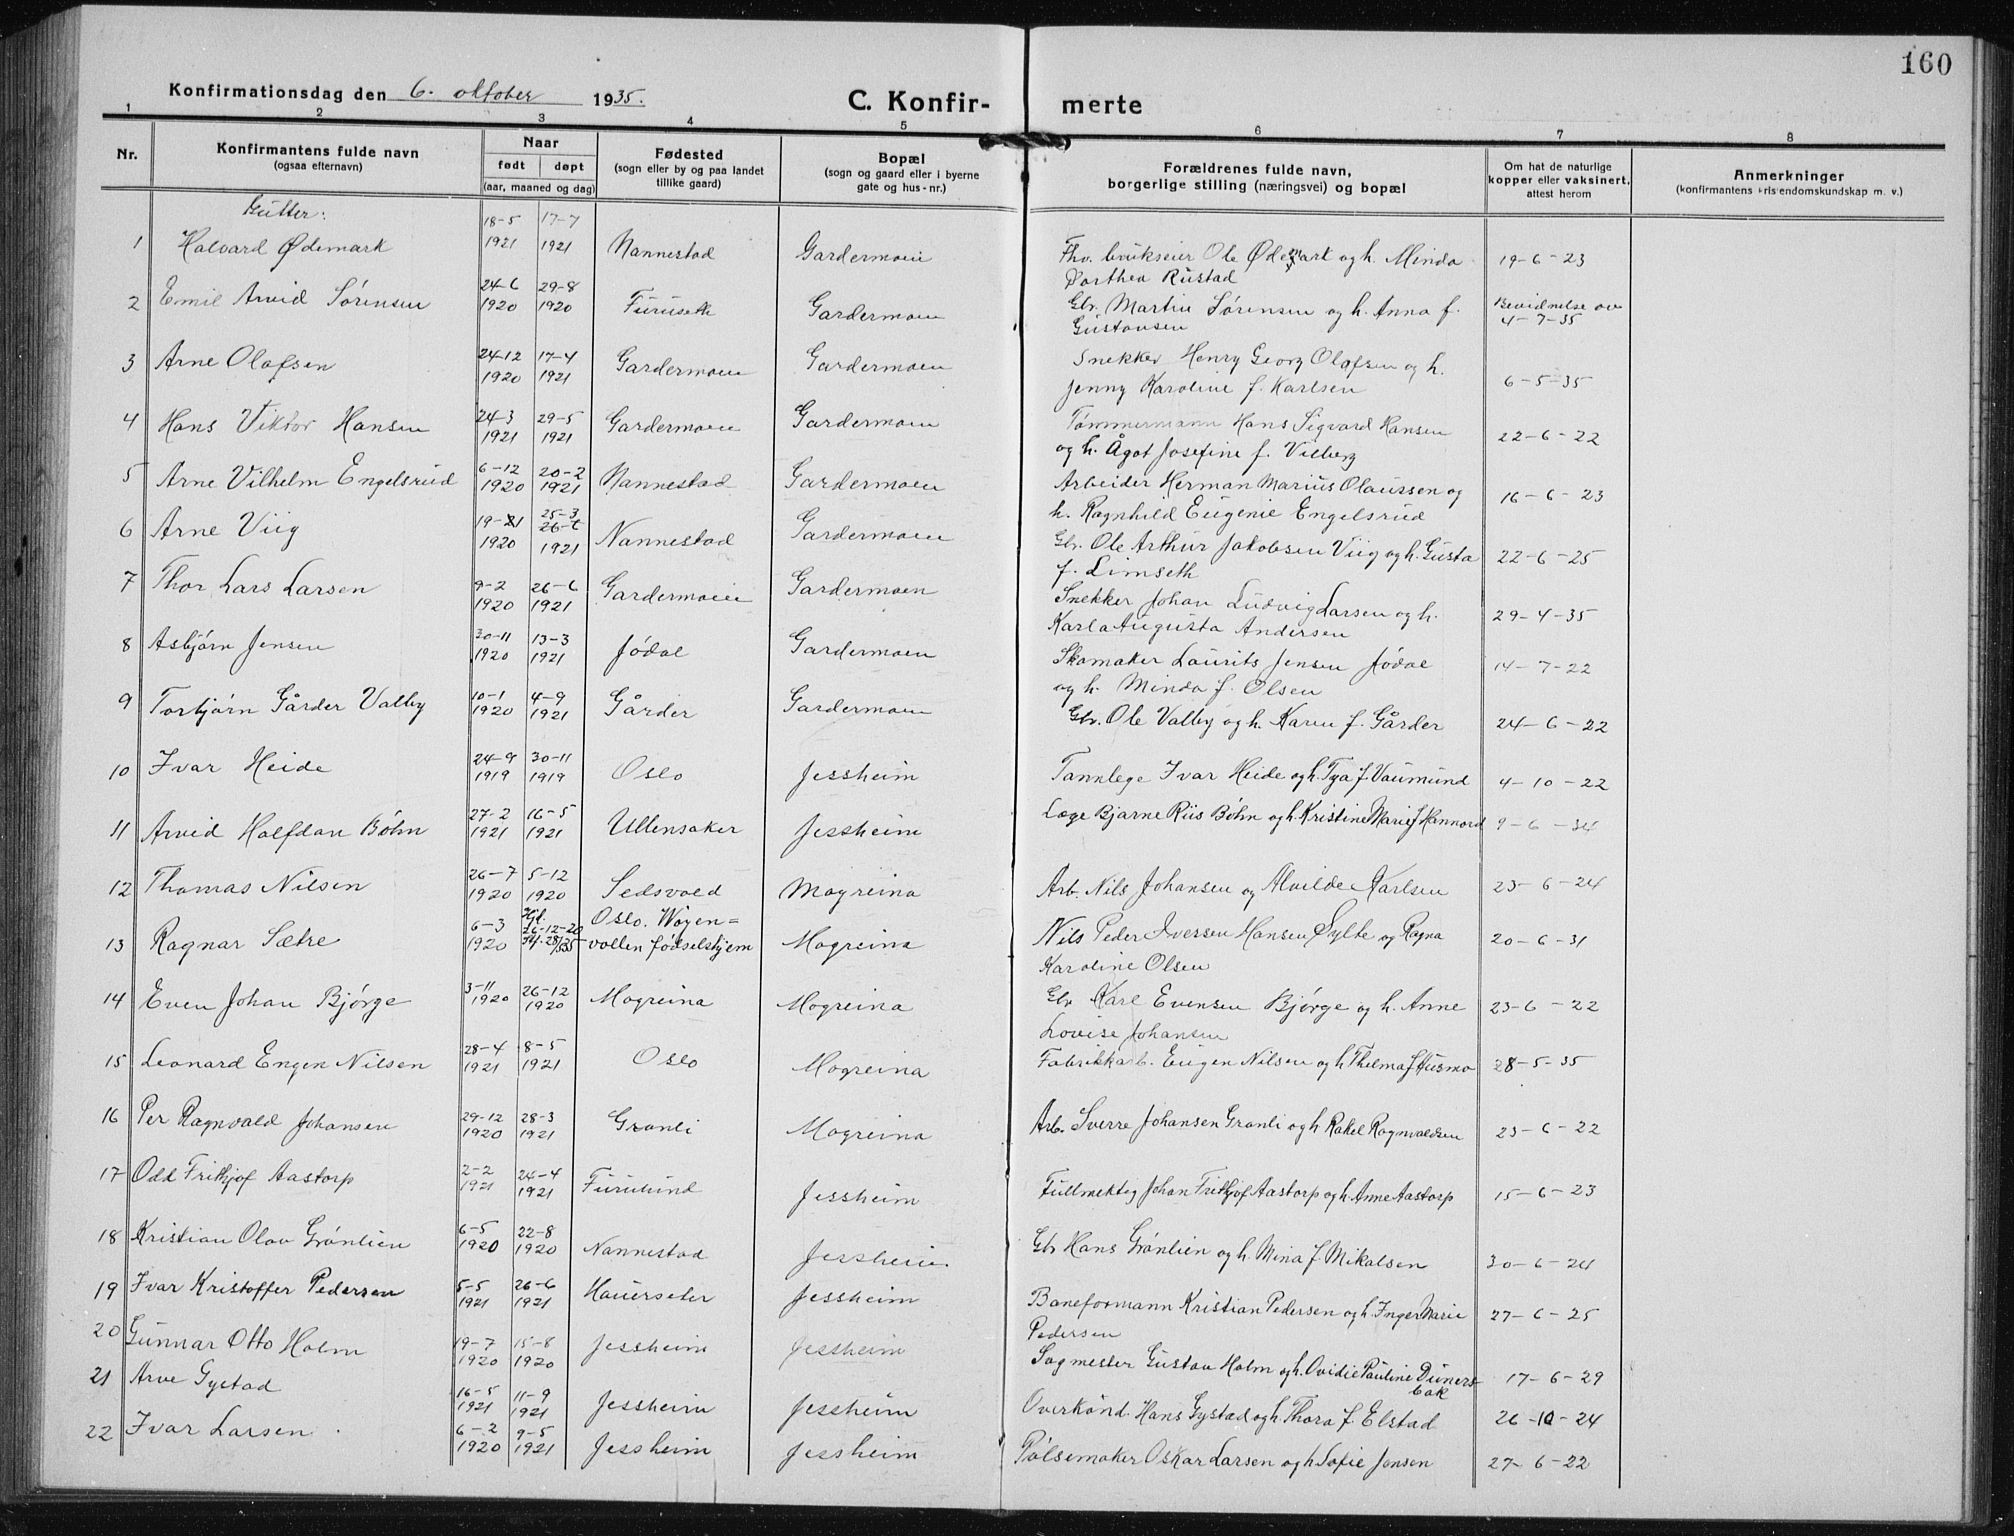 160
Konfirmationsdag den 6. oktober 1935.
C. Konfir- merte
1 2 3 4 5 6 7 8
Nr.
Konfirmantens fulde navn
(ogsaa efternavn)
Naar
født døpt
(aar, maaned og dag)
Fødested
(sogn eller by og paa landet
tillike gaard)
Bopæl
(sogn og gaard eller i byerne
gate og hus-nr.)
Forældrenes fulde navn,
borgerlige stilling (næringsvei) og bopæl
Om hat de naturlige
kopper eller vaksinert,
attest herom
Anmerkninger
(konfirmantens kristendomskundskap m. v.)
Gutter:
1 Halvard Ødemark 18-5 1921 17-7 1921 Nannestad Gardermoen Fhv. brukseier Ole Ødemark og h. Minda Dorthea Rustad 19-6-23
2 Emil Arvid Sørensen 24-6 1920 29-8 1920 Furuseth Gardermoen Gbr. Martin Sørensen og h. Anna f. Gustavsen Bevidnelse av 4-7-35
3 Arne Olafsen 24-12 1920 17-4 1921 Gardermoen Gardermoen Snekker Henry Georg Olafsen og h. Jenny Karoline f. Karlsen 6-5-35
4 Hans Viktor Hansen 24-3 1921 29-5 1921 Gardermoen Gardermoen Tømmermann Hans Sigvard Hansen og h. Ågot Josefine f. Vilberg 22-6-22
5 Arne Vilhelm Engelsrud 6-12 1920 20-2 1921 Nannestad Gardermoen Arbeider Herman Marius Olaussen og h. Ragnhild Eugenie Engelsrud 16-6-23
6 Arne Viig 1920 25-3 1921 Nannestad Gardermoen Gbr. Ole Arthur Jakobsen Viig og h. Gusta f. Limseth 22-6-25
7 Thor Lars Larsen 9-2 1920 26-6 1921 Gardermoen Gardermoen Snekker Johan Ludvig Larsen og h. Karla Augusta Andersen 29-4-35
8 Asbjørn Jensen 30-11 1920 13-3 1921 Jødal Gardermoen Skomaker Laurits Jensen Jødal og h. Minda f. Olsen 14-7-22
9 Torbjørn Gårder Valby 10-1 1920 4-9 1921 Gårder Gardermoen Gbr. Ole Valby og h. Karen f. Gårder 24-6-22
10 Ivar Heide 24-9 1919 30-11 1919 Oslo Jessheim Tannlege Ivar Heide og h. Tya f. Vaumund 4-10-22
11 Arvid Halfdan Bøhn 27-2 1921 16-5 1921 Ullensaker Jessheim Læge Bjarne Riis Bøhn og h. Kristine Marie f Hannord 9-6-34
12 Thomas Nilsen 26-7 1920 5-12 1920 Sedsvold Mogreina Arb. Nils Johansen og Alvilde Karlsen 23-6-24
13 Ragnar Sætre 6-3 1920 Hjd. 26-12-20 Oslo. Wøyen=vollen fødselshjem Mogreina Nils Peder Iversen Hansen Sylte og Ragna Karoline Olsen 20-6-31
14 Even Johan Bjørge 3-11 1920 26-12 1920 Mogreina Mogreina Gbr Karl Evensen Bjørge og h. Anne Lovise Johansen 23-6-22
15 Leonard Engen Nilsen 28-4 1921 8-5 1921 Oslo Mogreina Fabrikkarb. Eugen Nilsen og h Thelma f Husmo 28-5-35
16 Per Ragnvald Johansen 29-12 1920 28-3 1921 Granli Mogreina Arb. Sverre Johansen Granli og h Rakel Ragnvaldsen 23-6-22
17 Odd Frithjof Aastorp 2-2 1921 24-4 1921 Furulund Jessheim Fullmektig Johan Frithjof Aastorp og h. Anne Aastorp 15-6-23
18 Kristian Olav Grønlien 6-5 1920 22-8 1920 Nannestad Jessheim Gbr Hans Grønlien og h. Mina f. Mikalsen 30-6-24
19 Ivar Kristoffer Pedersen 5-5 1921 26-6 1921 Hauerseter Jessheim Baneformann Kristian Pedersen og h. Inger Marie Pedersen 27-6-25
20 Gunnar Otto Holm 19-7 1920 15-8 1920 Jessheim Jessheim Sagmester Gustav Holm og h. Ovidie Pauline Duners bak 17-6-29
21 Arve Gystad 16-5 1921 11-9 1921 Jessheim Jessheim Overkond. Hans Gystad og h. Thora f. Elstad 26-10-24
22 Ivar Larsen 6-2 1920 9-5 1921 Jessheim Jessheim Pølsemaker Oskar Larsen og h Sofie Jensen 27-6-22